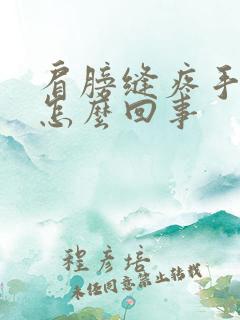 肩膀缝疼手
怎麽回事
程彦培
未经同意禁止转载